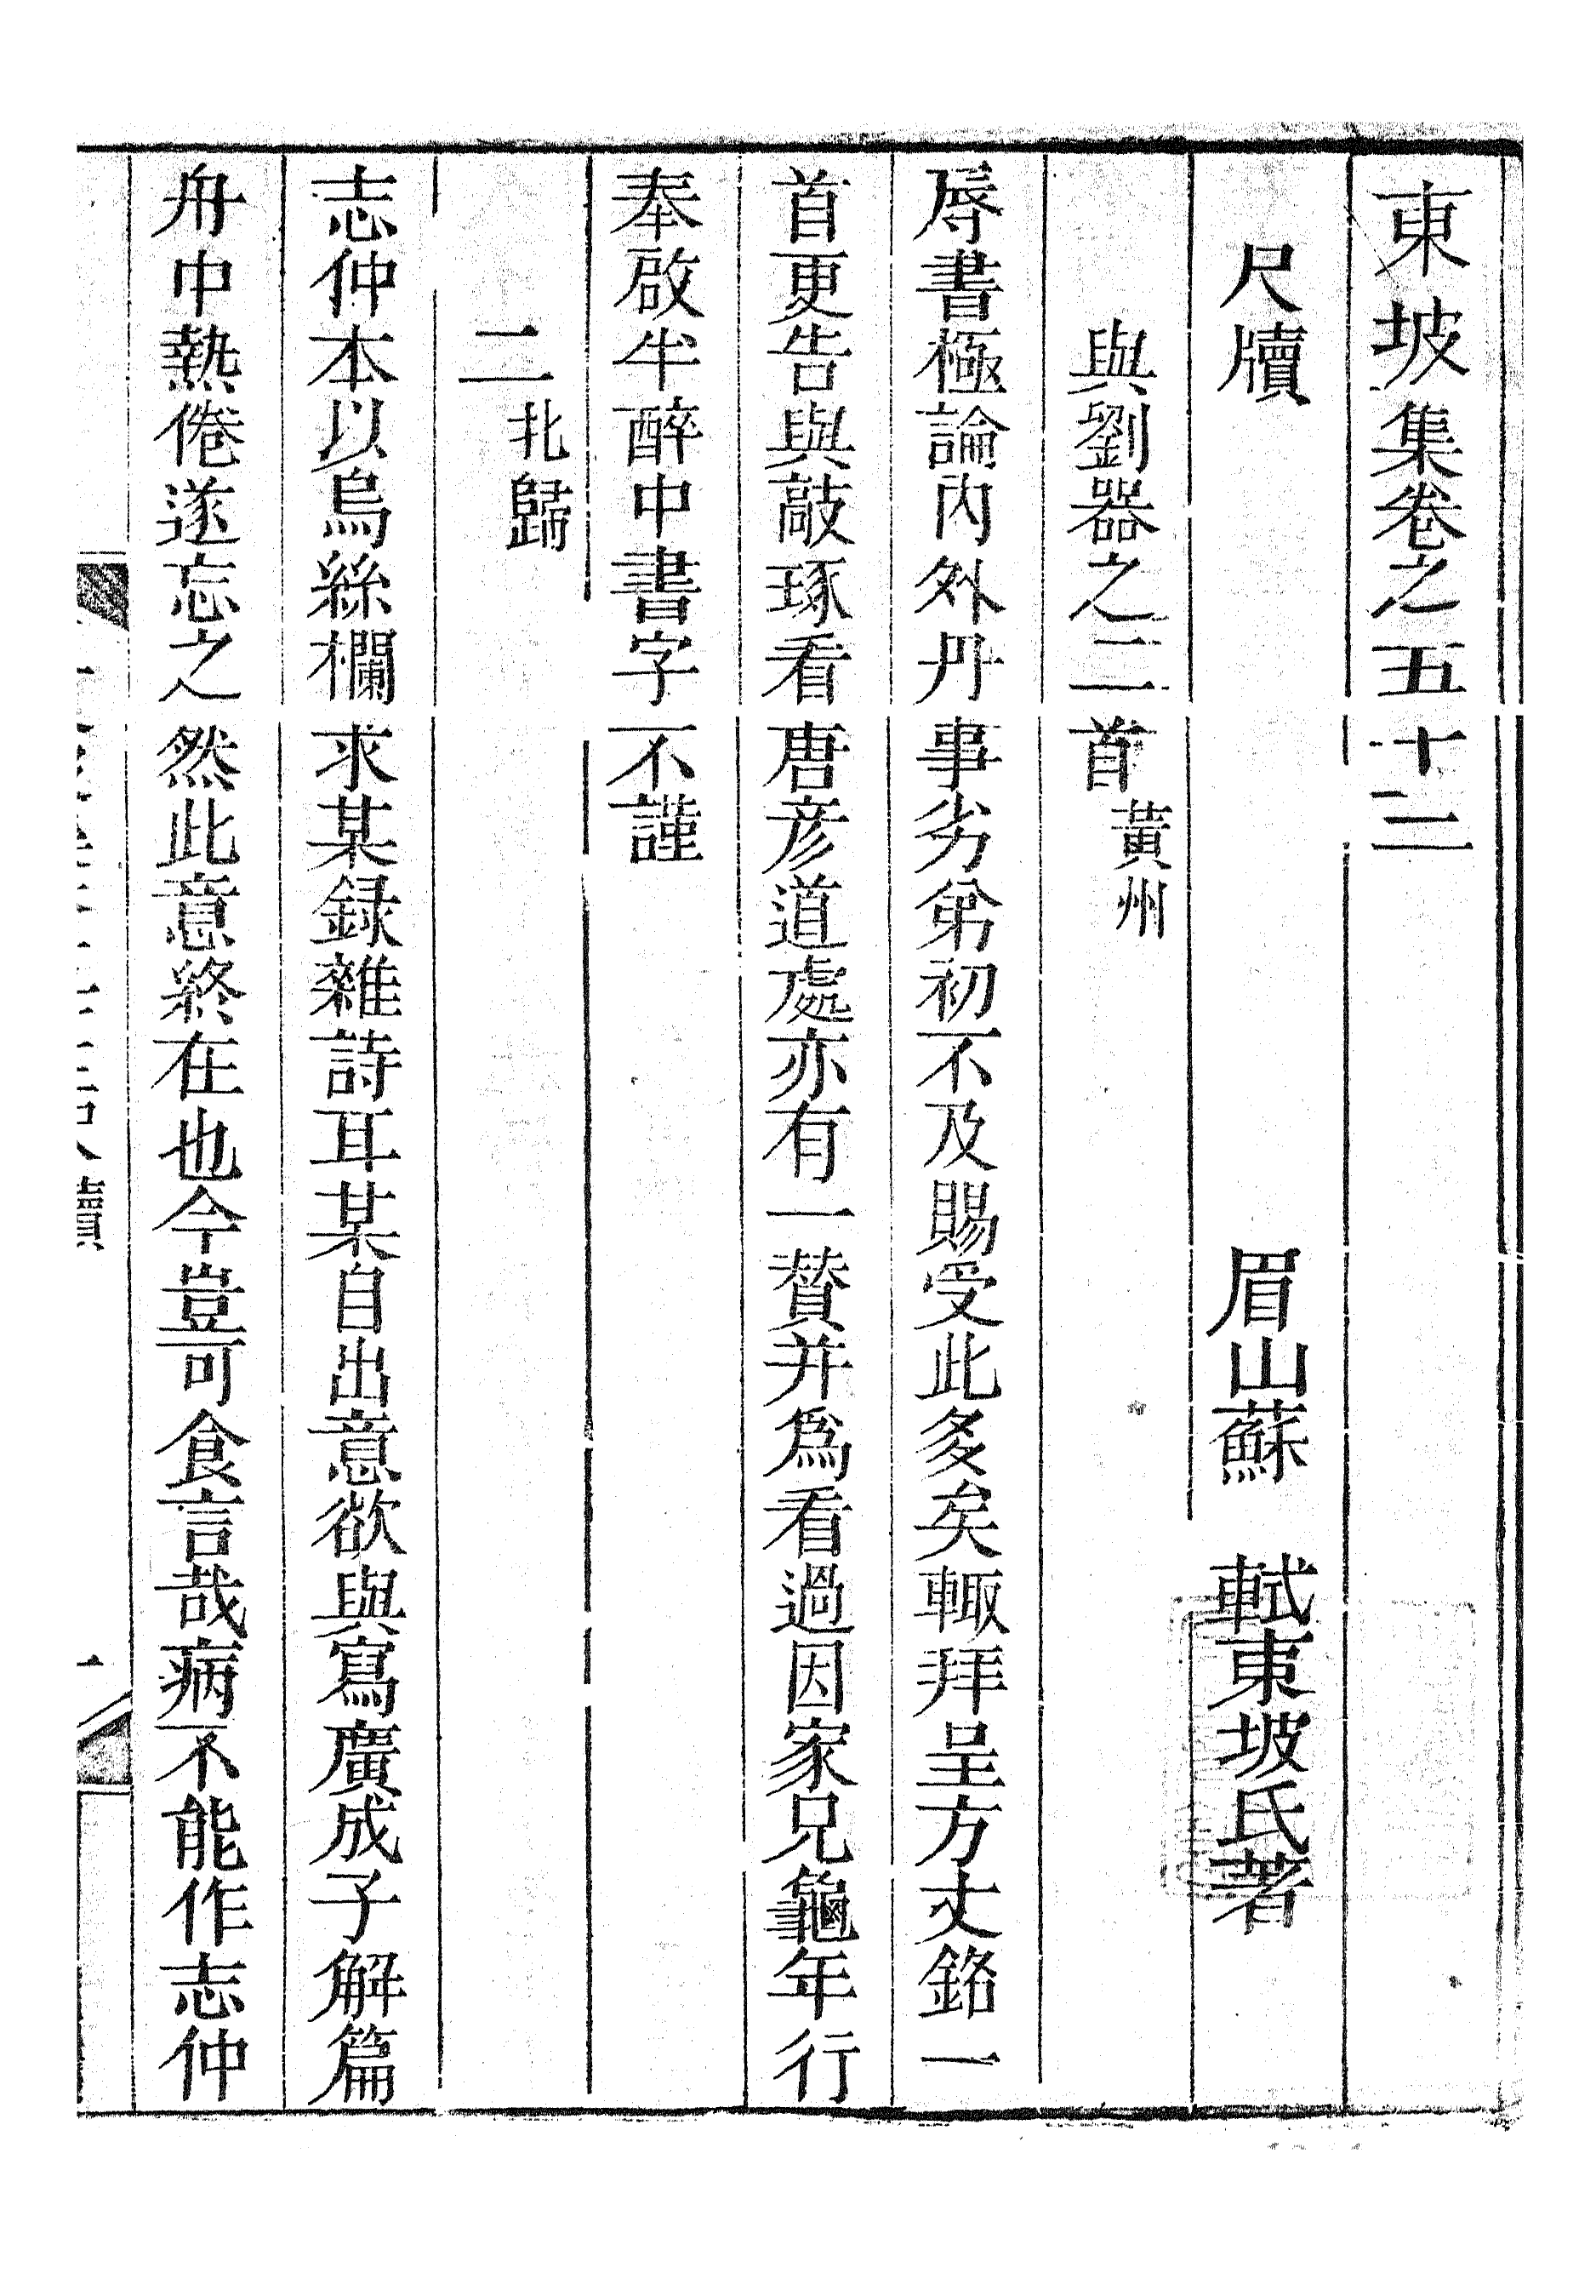 東坡集卷之五十二
尺牘　眉山蘇　軾東坡氏著
與劉器之二首黃州
辱書極論內外丹事劣弟初不及賜受此多矣輙拜呈方丈銘一
首更告與敲琢看唐彥道處亦有一贊并爲看過因家兄龜年行
奉啟半醉中書字不謹
二北歸
志仲本以烏絲欄求某録雜詩耳某自出意欲與寫廣成子解篇
舟中熱倦遂忘之然此意終在也今豈可食言哉病不能作志仲
牘